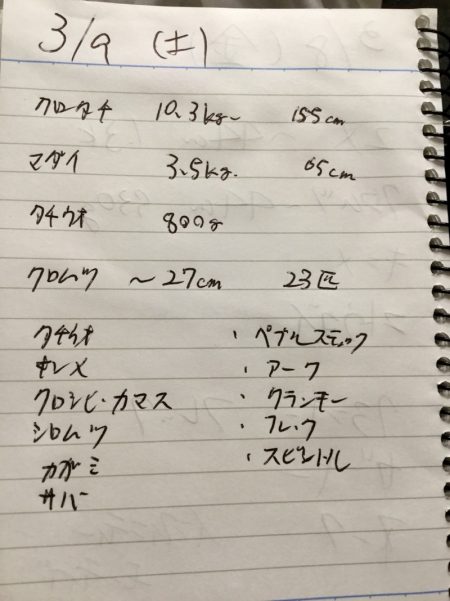 3/9 (土)
クロタチ 10.3kg~ 155cm
マダイ 3.5kg. 65cm
タチウオ 800g
クロムツ ~27cm 23匹
タチウオ ・ペブルスティック
キンメ ・アーク
クロシビ・カマス ・クランキー
シロムツ ・フレーク
カガミ
サバ